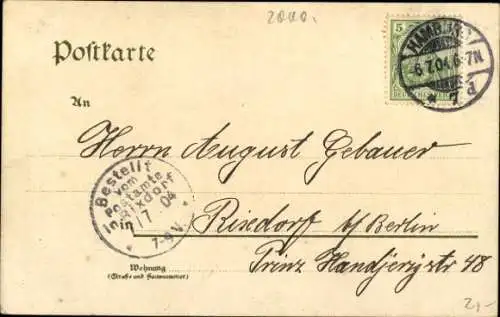 2000.
Postkarte
5
HAMBURG
-6.7.04. 6-7N
* 7 d
An
Herrn August Gebauer
Bestellt
vom
Postamte
in Rixdorf
7 04
7-9 V.
Rixdorf b/Berlin
Wohnung
(Straße und Hausnummer)
Prinz Handjerystr 48
2,-